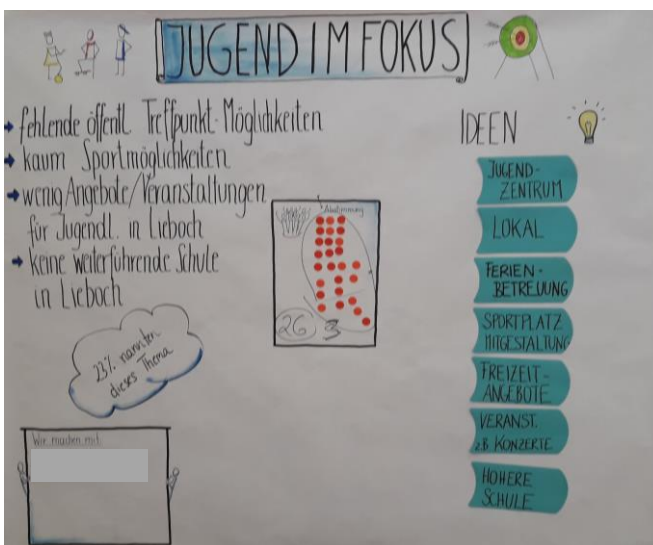 JUGEND IM FOKUS
fehlende öffentl. Treffpunkt-Möglichkeiten
kaum Sportmöglichkeiten
wenig Angebote/Veranstaltungen
für Jugendl. in Lieboch
keine weiterführende Schule
in Lieboch
23% nannten
dieses Thema
Wir machen mit
Abstimmung
26 3
IDEEN
JUGEND-
ZENTRUM
LOKAL
FERIEN-
BETREUUNG
SPORTPLATZ
MITGESTALTUNG
FREIZEIT-
ANGEBOTE
VERANST.
z.B. KONZERTE
HÖHERE
SCHULE